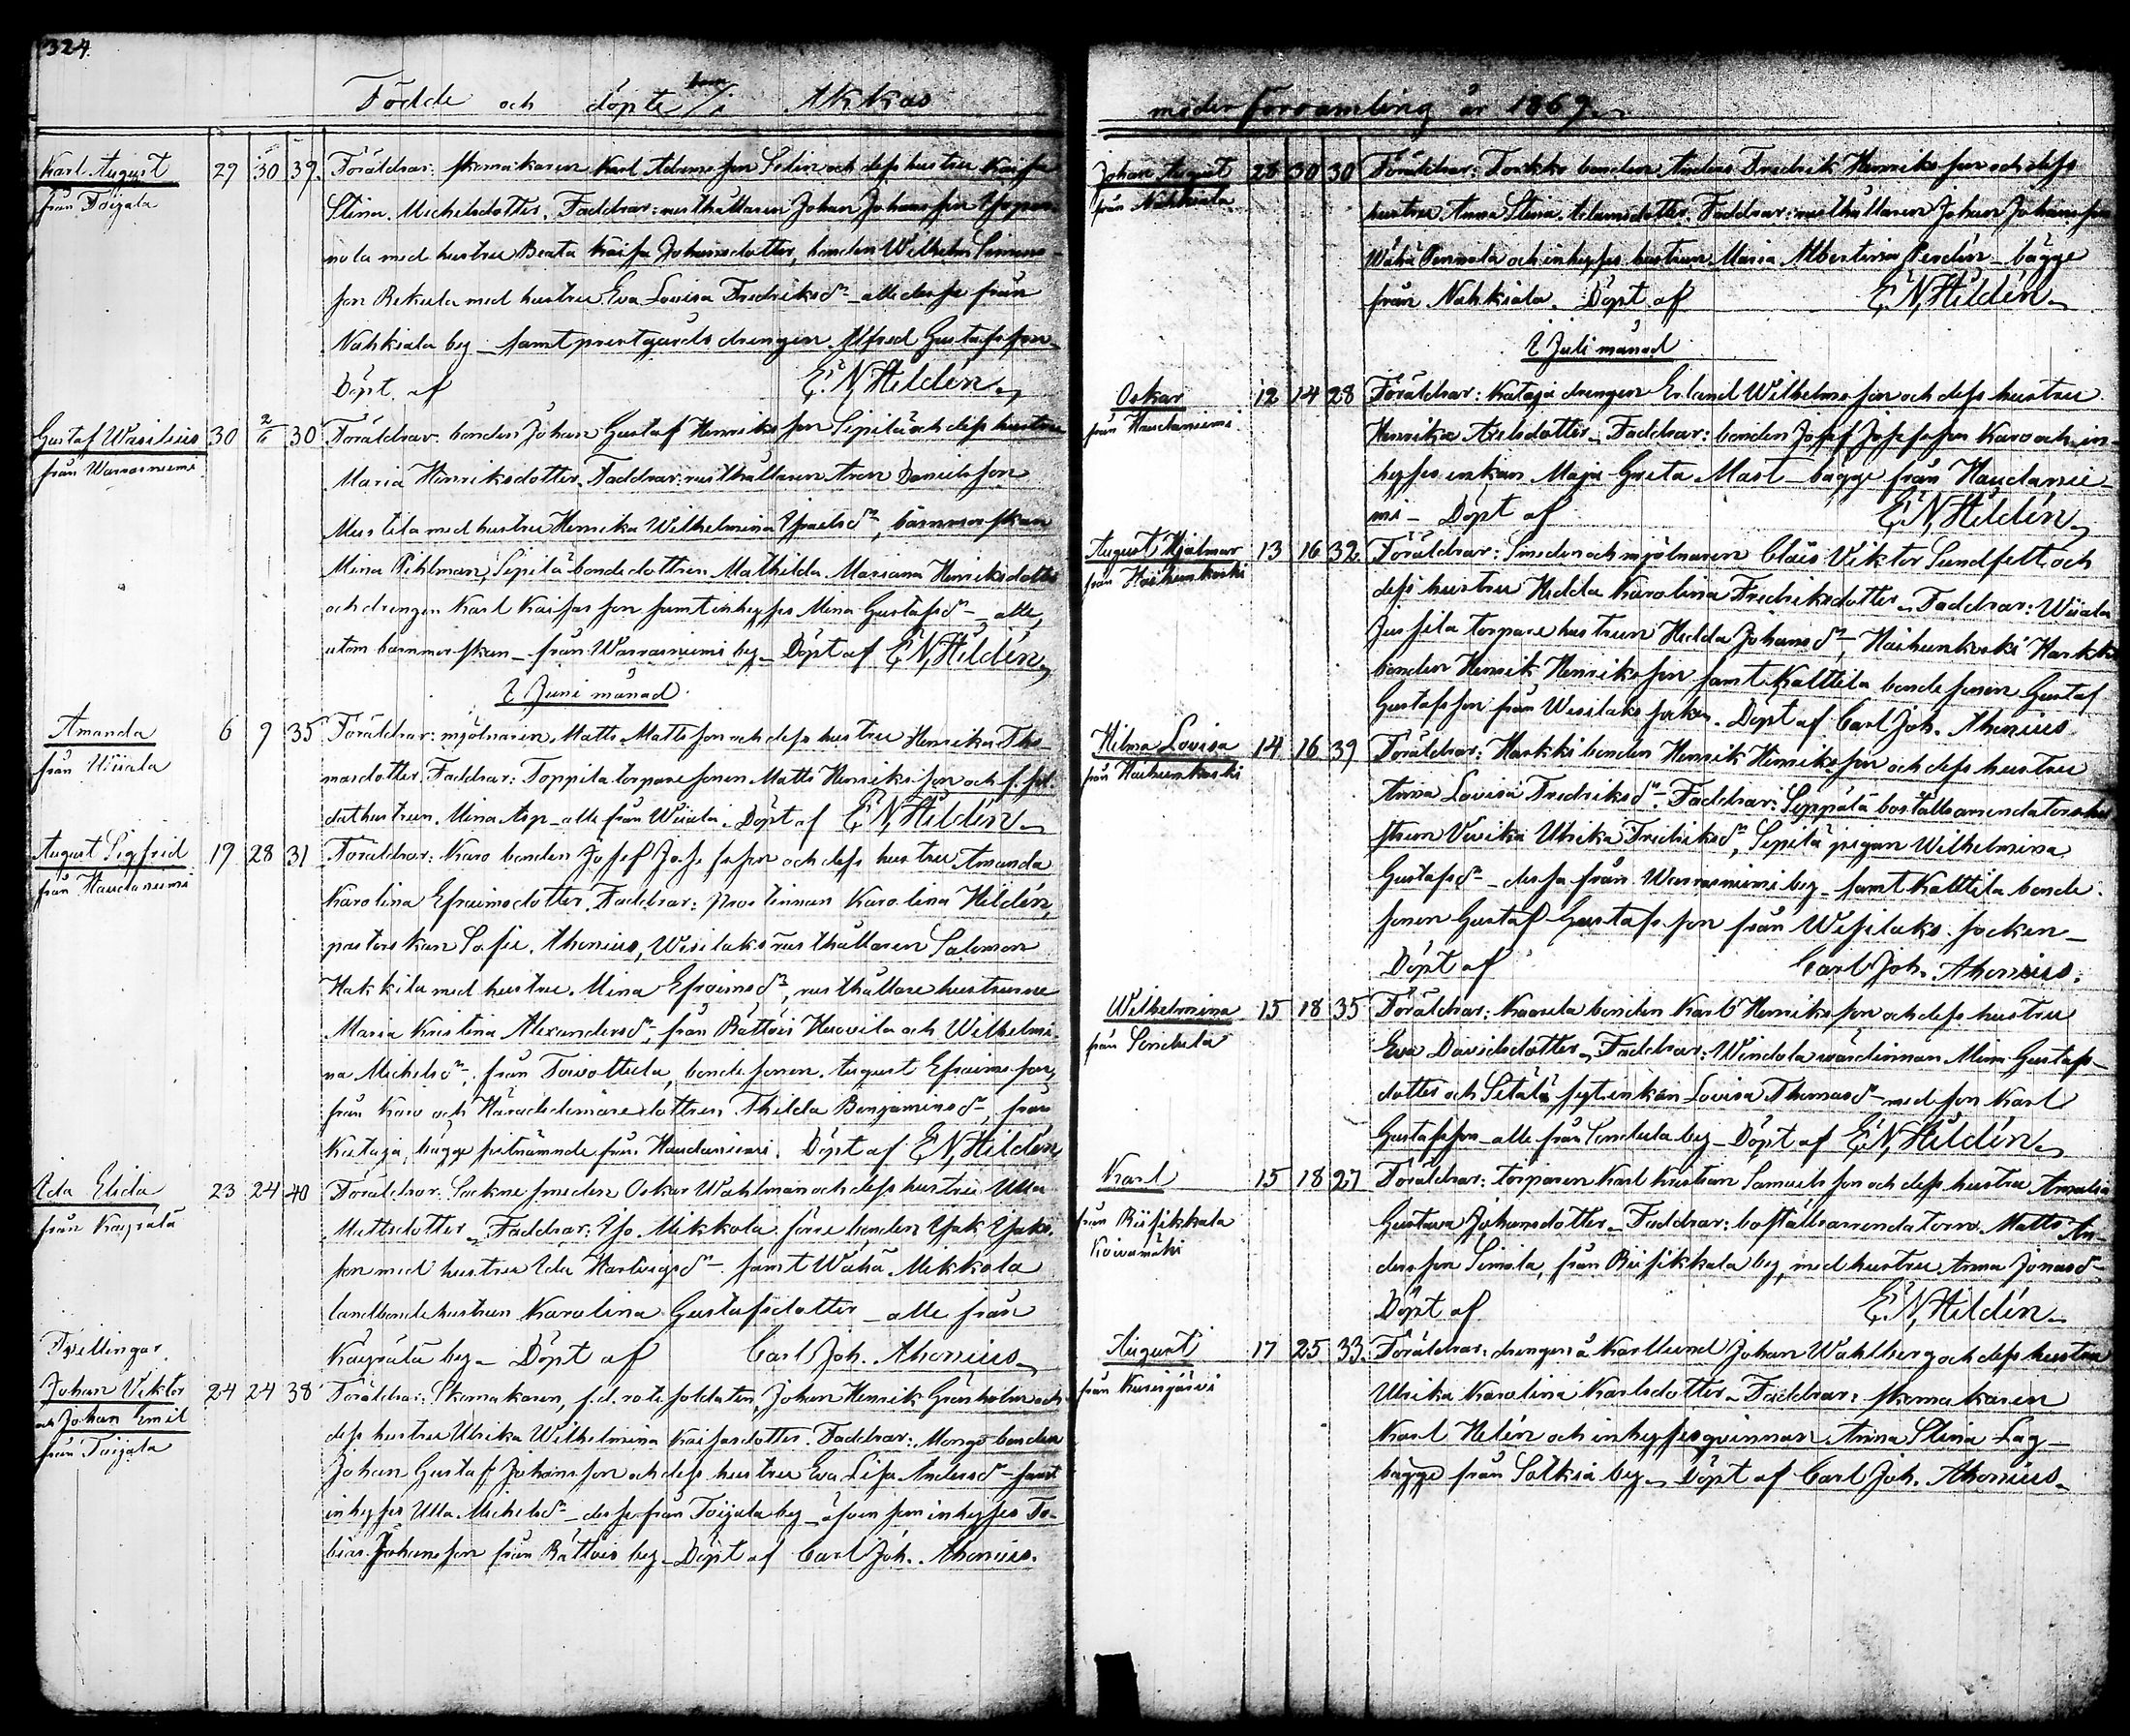 324.
Födde och döpte i Akkas
Karl August 29 30 39. Föräldrar: skomakaren Karl Adamsson Selin och dess hustru Kaisa
från Toijala Stina Michelsdotter. Faddrar: rusthållaren Johan Johansson
nola med hustru Beata Kaisa Johansdotter, bonden Wilhelm
son Rekula med hustru Eva Lovisa Fredriksdr – alle desse från
Nahkiala by – samt prestgårds drengen Alfred Gustafsson –
Döpt af E. N. Hildén.
Gustaf Wasilius 30 2/6 30 Föräldrar: bonden Johan Gustaf Henriksson Sipilä och dess hustru
från Warrasniemi Maria Henriksdotter. Faddrar: rusthållaren Aron Danielsson
Mustila med hustru Henrika Wilhelmina Israelsdr, barnmorskan
Mina Pihlman, Sipilä bondedottren Mathilda Mariana Henriksdotter
och drengen Karl Kaisasson samt inhyses Mina Gustafsdr – alle,
utom barnmorskan – från Warrasniemi by – Döpt af E. N. Hildén.
I Juni månad
Amanda 6 9 35 Föräldrar: mjölnaren Matts Mattsson och dess hustru Henrika Tho-
från Wiiala masdotter. Faddrar: Toppila torparesonen Matts Henriksson och f. sol-
dathustrun Mina Asp – alle från Wiiala. Döpt af E. N. Hildén.
August Sigfrid 19 28 31 Föräldrar: Karo bonden Josef Josefsson och dess hustru Amanda
från Haudaniemi Karolina Efraimsdotter. Faddrar: Prostinnan Karolina Hildén,
pastorskan Sofie Ahonius, Wesilaks rusthållaren Salomon
Hakkila med hustru Mina Efraimsdr, rusthållare hustrurne
Maria Kristina Alexandersdr, från Rättöis Huovila och Wilhelmi-
na Michelsdr, från Toivottula, bondesonen August Efraimsson,
från Karo och Häradsdomäredottren Thilda Benjaminsdr, från
Kataja, bägge sistnämnde från Haudaniemi. Döpt af E. N. Hildén
Ida Elida 23 24 40 Föräldrar: Sockne smeden Oskar Wahlman och dess hustru Ulla
från Kayrälä Mattsdotter. Faddrar: Iso Mikkola förre bonden Isak Isaks-
son med hustru Ida Hartvigsdr – samt Wähä Mikkola
landbondehustrun Karolina Gustafsdotter – alle från
Kayrälä by – Döpt af Carl Joh. Ahonius.
Tvillingar
Johan Viktor 24 24 38 Föräldrar: Skomakaren, f.d. rotesoldaten, Johan Henrik Granholm och
och Johan Emil dess hustru Ulrika Wilhelmina Kaisasdotter. Faddrar: Mongo bonden
från Toijala Johan Gustaf Johansson och dess hustru Eva Lisa Andersdr – samt
inhyses Ulla Michelsdr – desse från Toijala by – äfvensom inhyses To-
bias Johansson från Rättöis by – Döpt af Carl Joh. Ahonius.
moder församling år 1869.
Johan August 28 30 30 Föräldrar: Torkko bonden Anders Fredrik Henriksson och dess
från Nahkiala hustru Anna Stina Adamsdotter. Faddrar: rusthållaren Johan Johansson
Wähä Pennola och inhyses hustrun Maria Albertina – bägge
från Nahkiala. Döpt af E. N. Hildén.
I Juli månad
Oskar 12 14 28 Föräldrar: Kataja drengen Erland Wilhelmsson och dess hustru
från Haudaniemi Henrika Axelsdotter. Faddrar: bonden Josef Josefsson Karo och in-
hyses enkan Maja Greta Mast – bägge från Haudanie-
mi – Döpt af E. N. Hildén.
August Hjalmar 13 16 32 Föräldrar: Smeden och mjölnaren Claës Viktor Sundsett och
från Haihunkoski dess hustru Hedda Karolina Fredriksdotter. Faddrar: Wiiala
Jussila torpare hustrun Hedda Johansdr, Haihunkoski Harkki
bonden Henrik Henriksson samt Kalttila bondesonen Gustaf
Gustafsson från Wesilaks socken. Döpt af Carl Joh. Ahonius
Hilma Lovisa 14 16 39 Föräldrar: Harkki bonden Henrik Henriksson och dess hustru
från Haihunkoski Anna Lovisa Fredriksdr. Faddrar: Seppälä boställsarendatorshu-
strun Vivika Ulrika Fredriksdr, Sipilä pigan Wilhelmina
Gustafsdr – dessa från Warrasniemi by – samt Kalttila bonde-
sonen Gustaf Gustafsson från Wesilaks socken –
Döpt af Carl Joh. Ahonius.
Wilhelmina 15 18 35 Föräldrar: Kaarela bonden Karl Henriksson och dess hustru
från Sondula Eva Davidsdotter. Faddrar: Windola värdinnan Mina Gustafs-
dotter och Setälä sytenkan Lovisa Thomasdr med son Karl
Gustafsson – alle från Sondula by – Döpt af E. N. Hildén.
Karl 15 18 27 Föräldrar: torparen Karl Kristian Samuelsson och dess hustru Amalia
från Riisikkala Gustava Johansdotter. Faddrar: boställsarrendatorn Matts An-
Koivumäki dersson Simola, från Riisikkala by, med hustru Anna Jonasdr
Döpt af E. N. Hildén.
August 17 25 33. Föräldrar: drengen å Karlslund Johan Wahlberg och dess hustru
från Kurisjärvi Ulrika Karolina Karlsdotter. Faddrar: skomakaren
Karl Helén och inhysesqvinnan Anna Stina Lag –
bägge från Sotkia by. Döpt af Carl Joh. Ahonius.